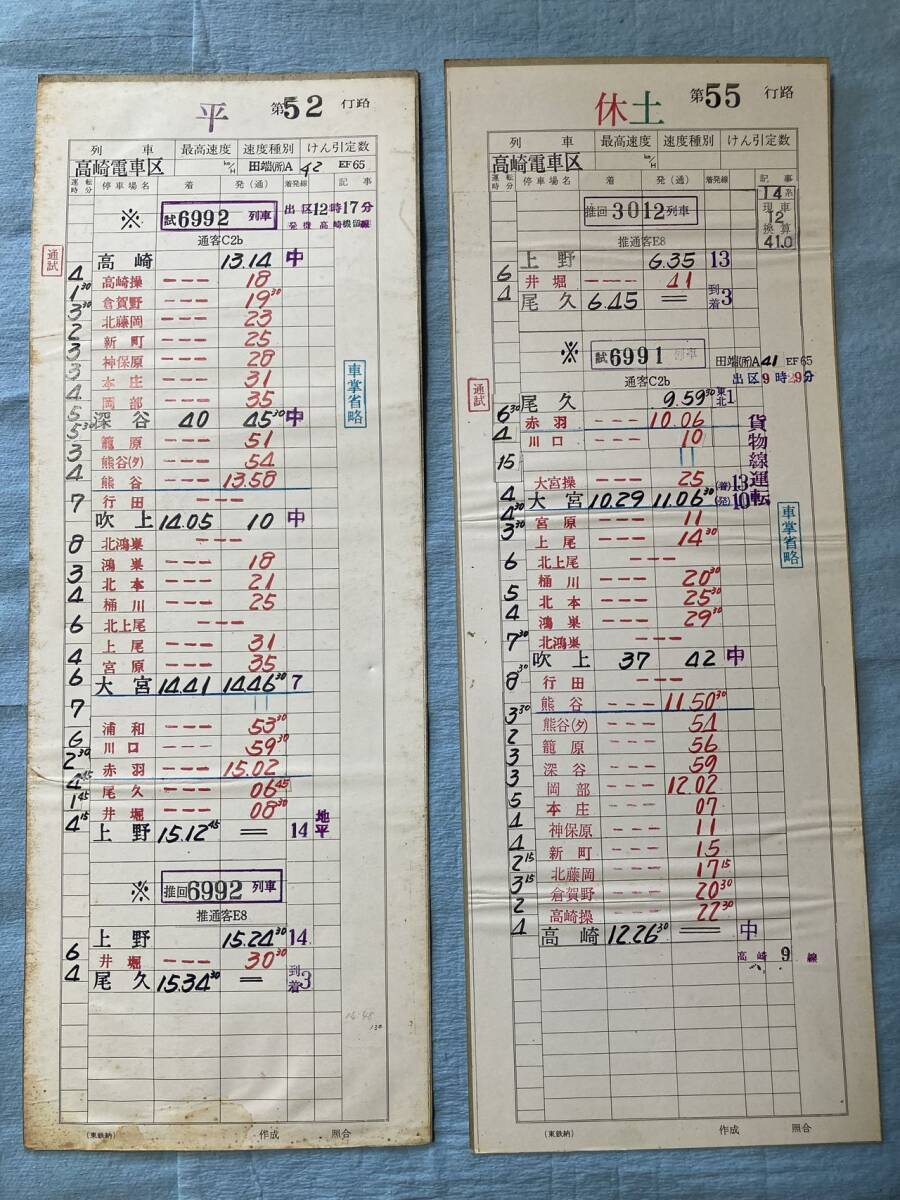 平 第52行路
列車 最高速度 速度種別 けん引定数
高崎電車区 km/H 田端(所)A 42 EF65
運転時分 停車場名 着 発(通) 着発線 記事
※ 試6992列車 出区12時17分
通客C2b
通試
高崎 13.14 中
4 高崎操 --- 18
1 30 倉賀野 --- 19 30
3 30 北藤岡 --- 23
2 新町 --- 25
3 神保原 --- 28
3 本庄 --- 31
4 岡部 --- 35
5 深谷 40 45 30 中
5 30 籠原 --- 51
3 熊谷(タ) --- 54
4 熊谷 --- 13.58
行田 ---
7 吹上 14.05 10 中
北鴻巣 ---
8 鴻巣 --- 18
3 北本 --- 21
4 桶川 --- 25
北上尾 ---
6 上尾 --- 31
4 宮原 --- 35
6 大宮 14.41 14.46 30 7
7 浦和 --- 53 30
6 川口 --- 59 30
2 30 赤羽 --- 15.02
4 45 尾久 --- 06 45
1 45 井堀 --- 08 30
4 15 上野 15.12 45 = 14 地平
車掌省略
※ 推回6992列車
推通客E8
上野 15.24 30 14
6 井堀 --- 30 30
4 尾久 15.34 30 = 到着3
(東鉄納) 作成 照合
休土 第55行路
列車 最高速度 速度種別 けん引定数
高崎電車区 km/H
運転時分 停車場名 着 発(通) 着発線 記事
※ 推回3012列車
14系 現車12 換算41.0
推通客E8
上野 6.35 13
6 井堀 --- 41
4 尾久 6.45 = 到着3
※ 試6991列車 田端(所)A 41 EF65
通客C2b 出区9時29分
通試
尾久 9.59 30 東北1
6 30 赤羽 --- 10.06
4 川口 --- 10
15 大宮操 --- 25
4 大宮 10.29 11.06 30 (着)13 (発)10
4 30 宮原 --- 11
3 30 上尾 --- 14 30
北上尾 ---
6 桶川 --- 20 30
5 北本 --- 25 30
4 鴻巣 --- 29 30
北鴻巣 ---
7 30 吹上 37 42 中
行田 ---
8 30 熊谷 --- 11.50 30
3 30 熊谷(タ) --- 54
2 籠原 --- 56
3 深谷 --- 59
3 岡部 --- 12.02
5 本庄 --- 07
4 神保原 --- 11
4 新町 --- 15
2 15 北藤岡 --- 17 15
3 15 倉賀野 --- 20 30
2 高崎操 --- 22 30
4 高崎 12.26 30 = 中
高崎 9 線
貨物線運転
車掌省略
(東鉄納) 作成 照合